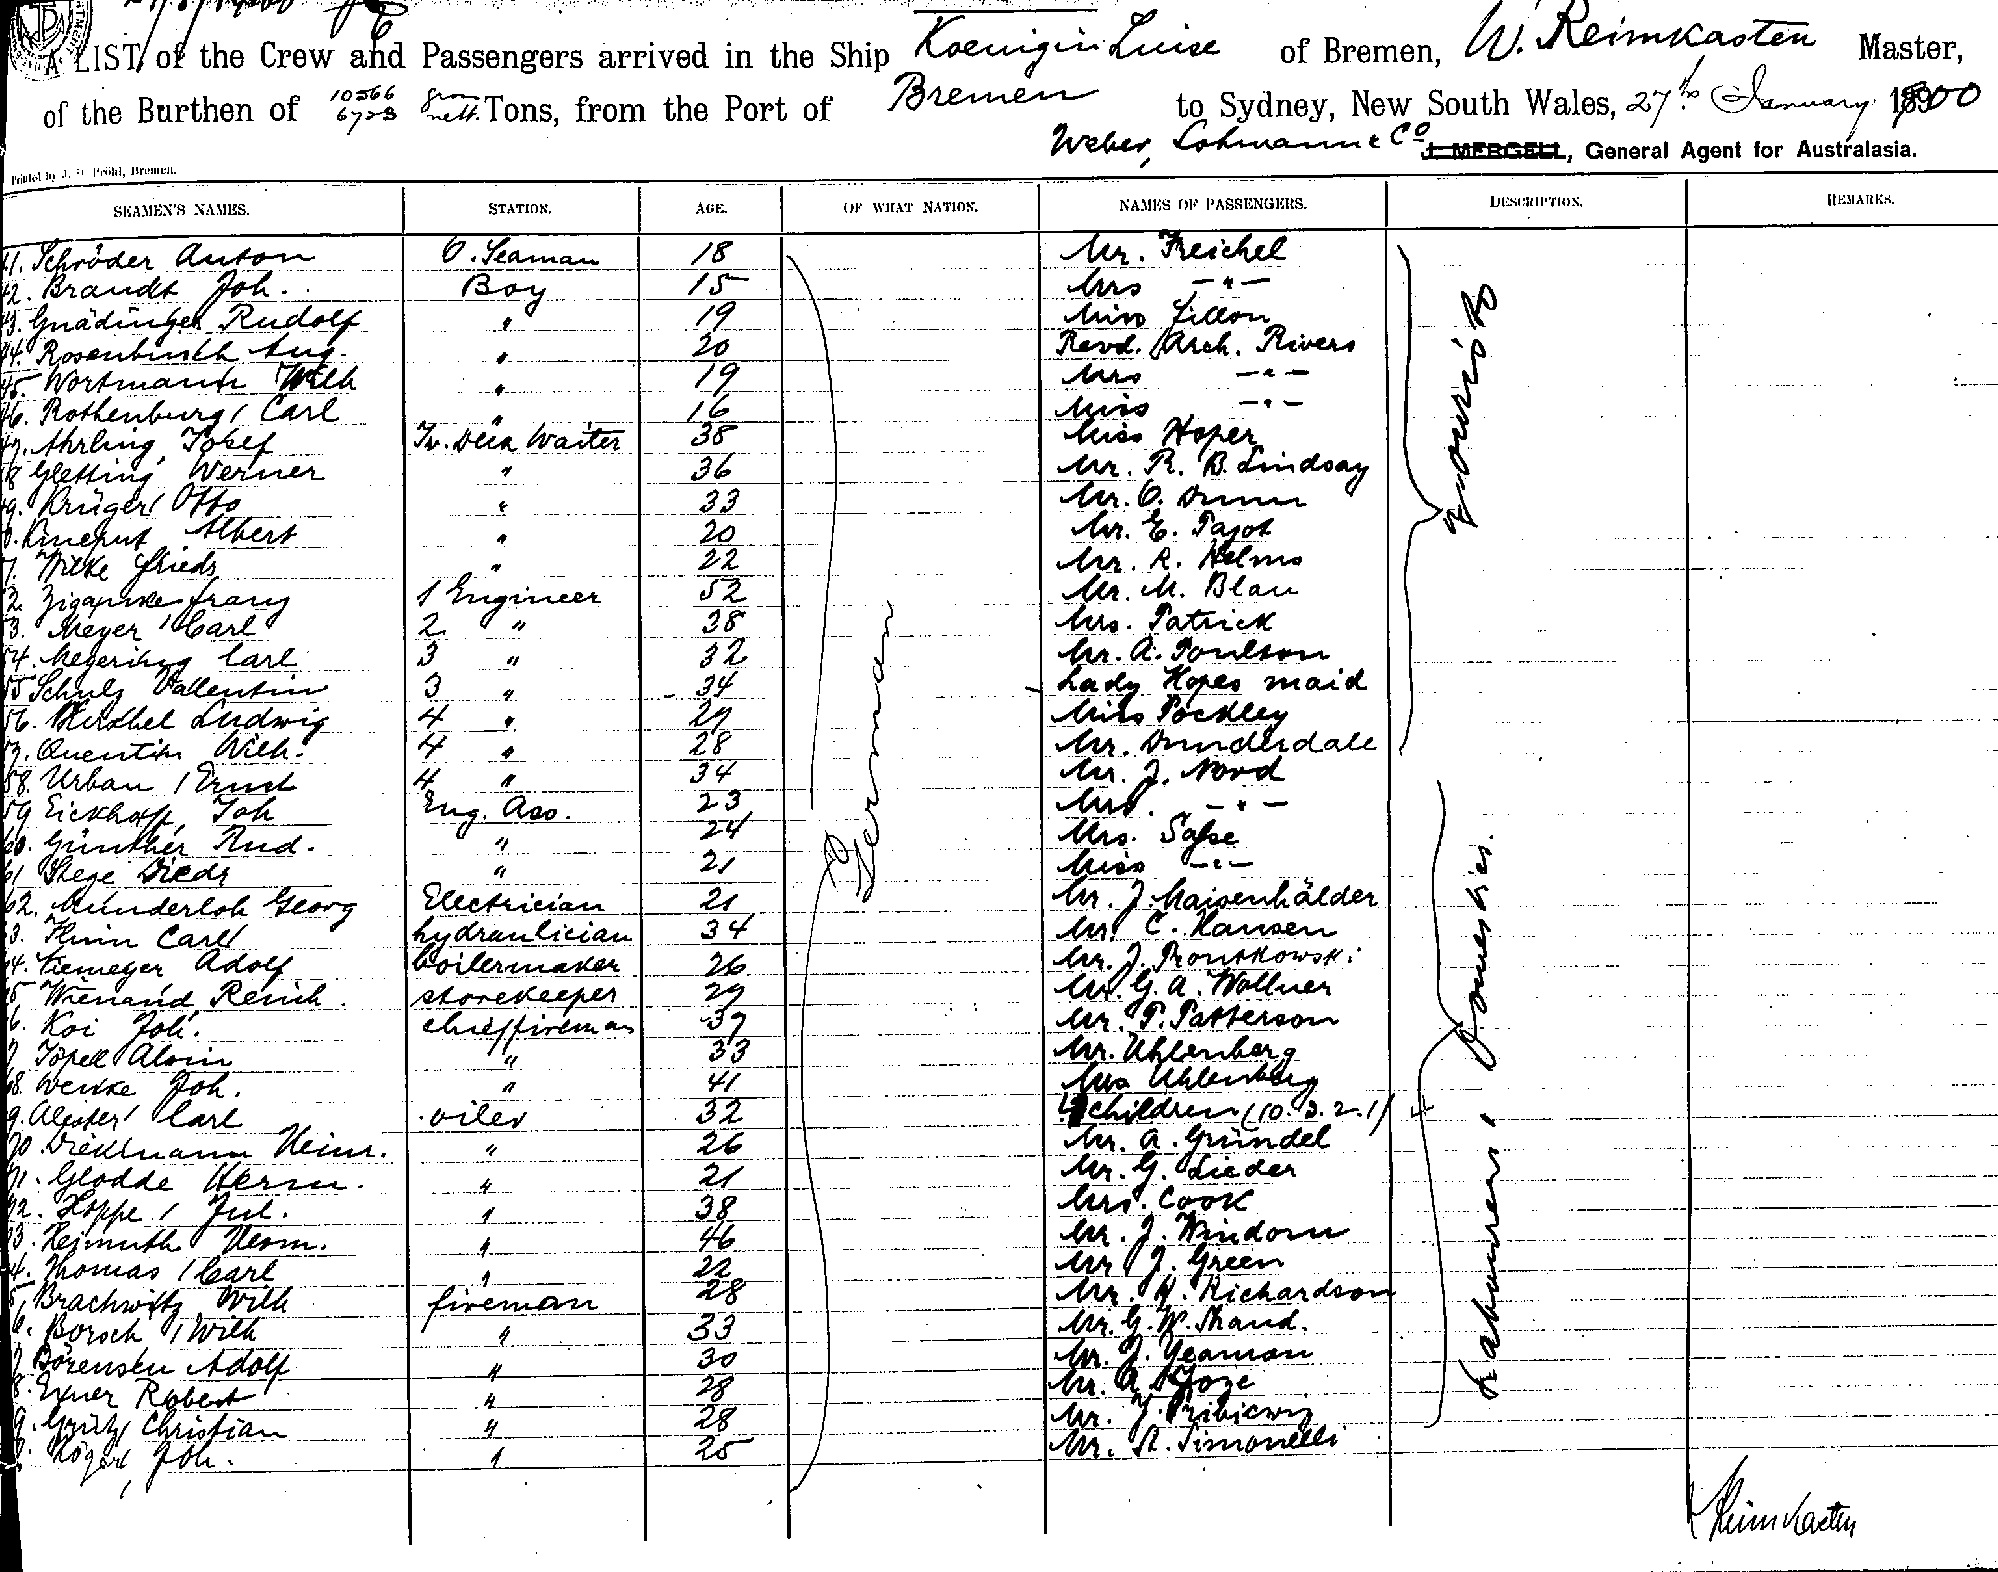 A LIST, of the Crew and Passengers arrived in the Ship Koenigin Luise of Bremen, W. Reimkasten Master,
of the Burthen of 10566 gross 6723 nett. Tons, from the Port of Bremen to Sydney, New South Wales, 27th January 1900
Weber, Lohmann & Co J. MERGELL, General Agent for Australasia.
Printed by J. H. Pröhl, Bremen.
SEAMEN'S NAMES. STATION. AGE. OF WHAT NATION. NAMES OF PASSENGERS. DESCRIPTION. REMARKS.
41. Schröder Anton O. Seaman 18 Mr. Freichel
42. Brandt Joh. Boy 15 Mrs — " —
43. Gnädinger Rudolf " 19 Miss Fillon
44. Rosenbusch Aug. " 20 Revd. Arch. Rivers
45. Wortmann Wilh " 19 Mrs — " —
46. Rothenburg, Carl " 16 Miss — " —
47. Ahrling, Josef Tw. Deck Waiter 38 Miss Hoper
48 Gletting Werner " 36 Mr. R. B. Lindsay
49. Krüger Otto " 33 Mr. O. Dunn
Albert " 20 Mr. E. Pajot
Wilke Friedr " 22 Mr. R. Helms
2. Franz 1 Engineer 52 Mr. M. Blau
3. Meyer, Carl 2 " 38 Mrs. Patrick
54. Carl 3 " 32 Mr. A. Poulson
55 Schulz Vallentin 3 " 34 Lady Hopes maid
56. Ludwig 4 " 29 Miss Pockley
57. Quentin Wilh. 4 " 28 Mr. Dunderdale
58. Urban, Ernst 4 " 34 Mr. J. Nord
59 Eickhoff, Joh Eng. Ass. 23 Mrs. — " —
60. Günther Rud. " 24 Mrs. Salse
61 Stege Diedr " 21 Miss — " —
62. Munderloh Georg Electrician 21 Mr. J. Maisenhälder
3. Carl hydraulician 34 Mr C. Hansen
4. Niemeyer Adolf boilermaker 26 Mr. J. Prontkowski
5 Wienand Reinh. storekeeper 29 Mr. G. A. Wollner
6. Koi Joh. chieffireman 37 Mr. P. Patterson
7 Töpel Alvin " 33 Mr. Uhlenberg
68. Wencke Joh. " 41 Mrs Uhlenberg
9. Carl oiler 32 4 children (10. 3. 2. 1)
70. Diekmann Heinr. " 26 Mr. A. Gründel
71. Glodde Herm. " 21 Mr. G. Lieder
72. Hoppe, Jul. " 38 Mrs. Cook
73. Reimuth Herm. " 46 Mr. J. Windorn
4. Thomas, Carl " 22 Mr J. Green
5, Brachwitz Wilh fireman 28 Mr. H. Richardson
6. Borsch, Wilh " 33 Mr. G. W. Shand.
7 Börensen Adolf " 30 Mr. J. Yeaman
8. Exner Robert " 28 Mr. A.
9. Grütz Christian " 28 Mr. J.
Röger, Joh. " 25 Mr. St. Simonelli
German
Tourists
Labourers, Domestics.
Reimkasten